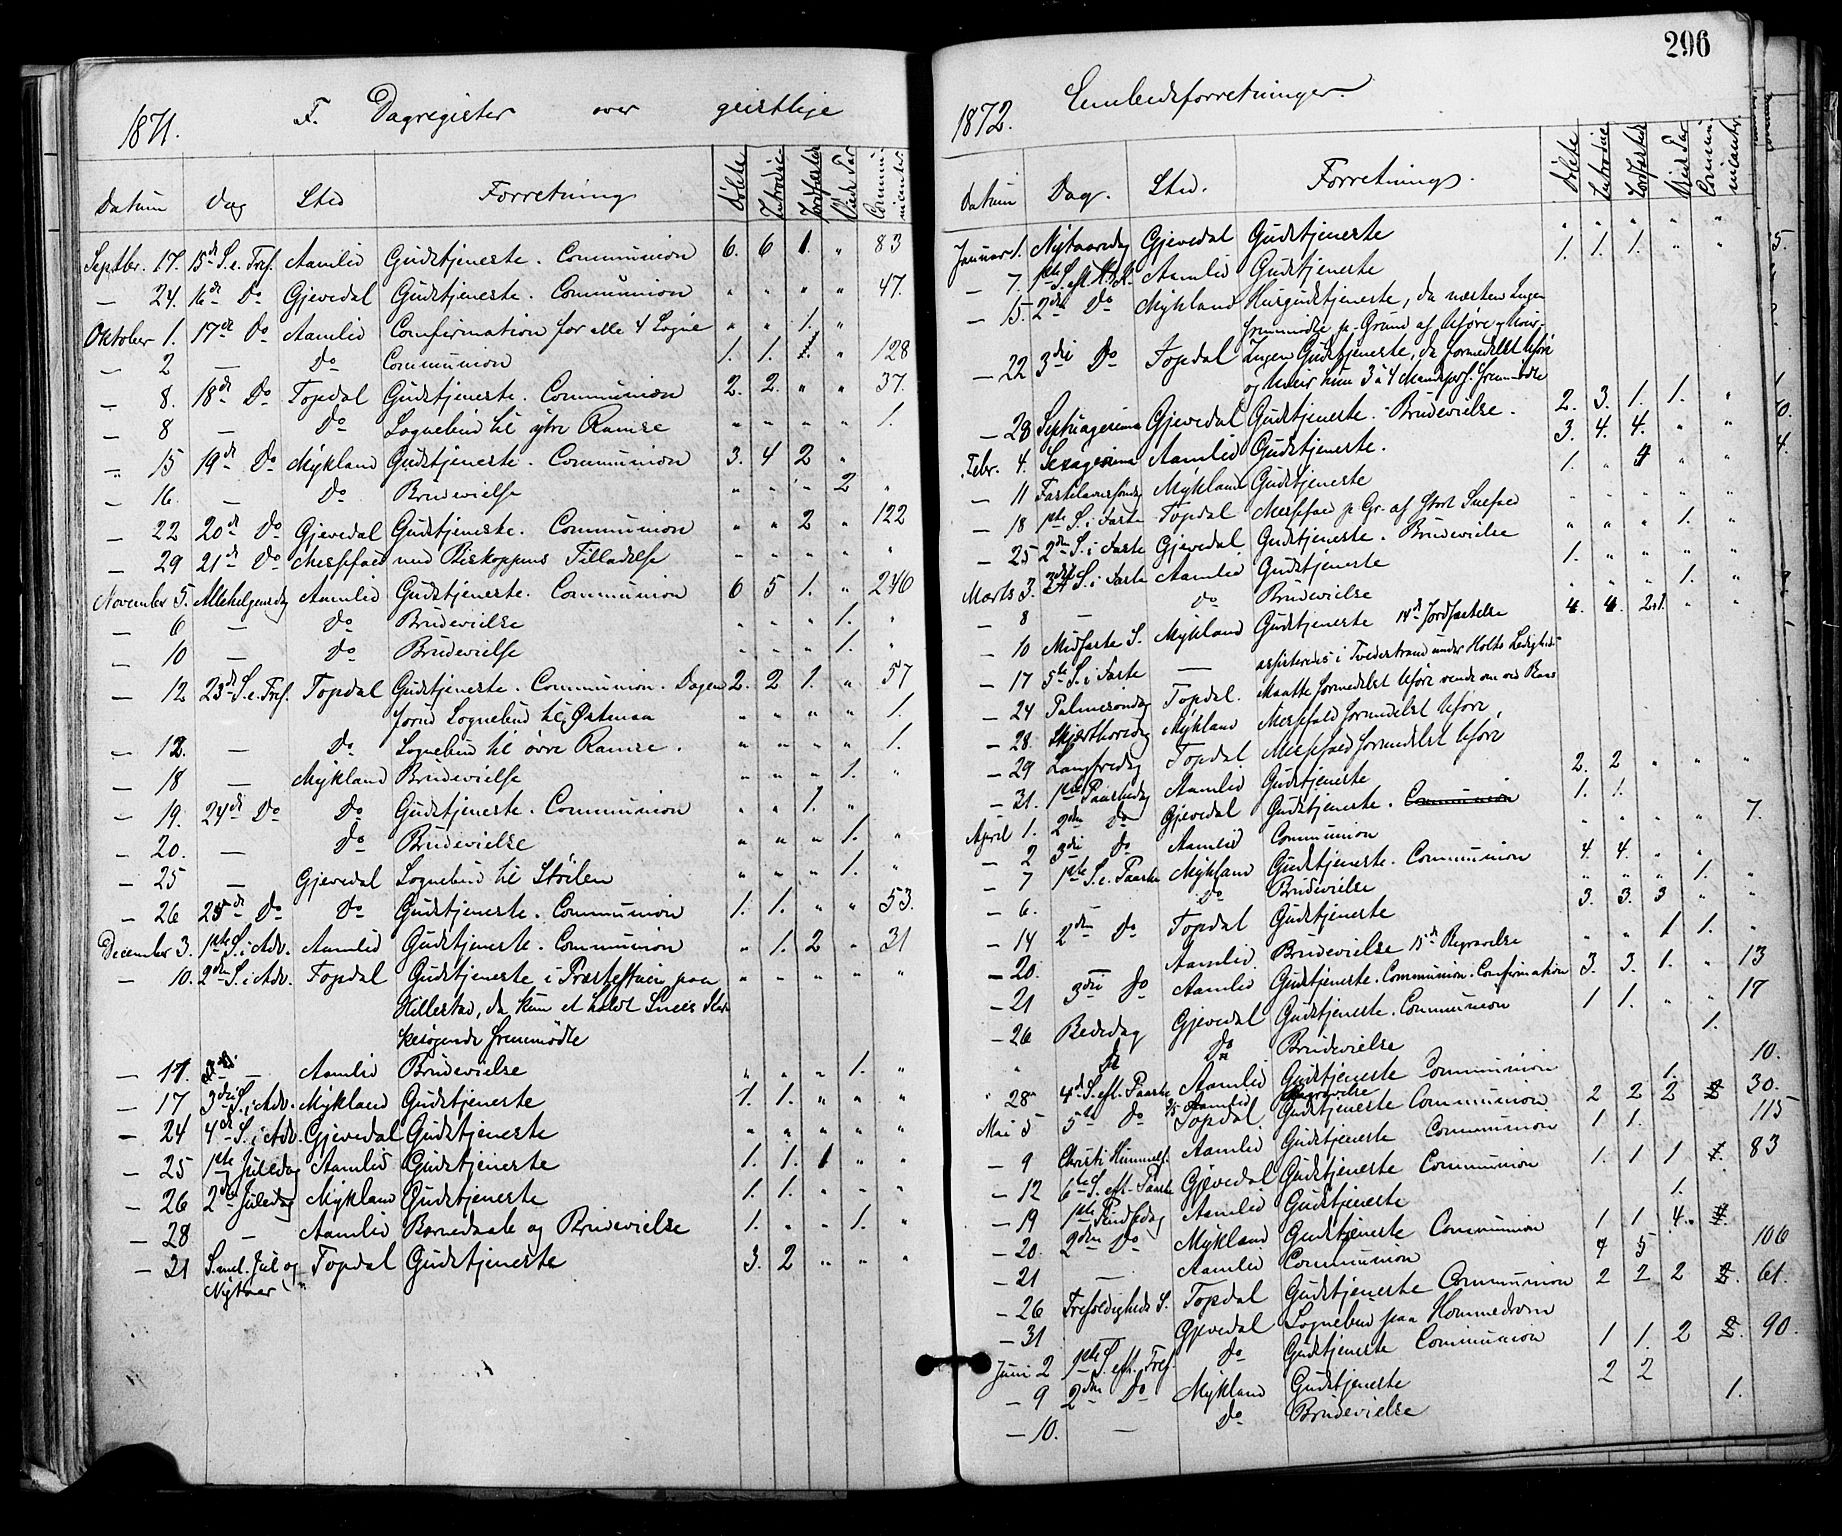 296
1871. F. Dagregister over geistlige
Datum Dag Sted Forretning Døbte Introduc. Jordfæstede Viede Par Communicanter
Septbr. 17. 15de S. e. Tref. Aamlid Gudstjeneste. Communion 6. 6 1. " 83
— 24. 16de Do Gjevedal Gudstjeneste. Communion " " " " 47.
Oktober 1. 17de Do Aamlid Confirmation for alle 4 Sogne " " 1. "
— 2 — Do Communion 1. 1. 1. " 128
— 8. 18de Do Topdal Gudstjeneste. Communion 2. 2. " " 37.
— 8 — Do Sognebud til ytre Ramse " " " " 1.
" 15 19de Do Mykland Gudstjeneste. Communion 3. 4 2 "
— 16. — Do Brudevielse " " " 2 "
— 22 20de Do Gjevedal Gudstjeneste. Communion " " 2 " 122
— 29 21de Do Messefald med Biskoppens Tilladelse " " " " "
November 5. Allehelgensdag Aamlid Gudstjeneste. Communion 6 5 1. " 246
— 6 — Do Brudevielse " " " 1. "
— 10 — Do Brudevielse " " " 1. "
— 12 23de S. e. Tref. Topdal Gudstjeneste. Communion. Dagen 2. 2 1. " 57
forud Sognebud til Østenaa " " " " 1.
— 12. — Do Sognebud til øvre Ramse. " " " " 1.
— 18 — Mykland Brudevielse " " " 1. "
— 19. 24de Do Do Gudstjeneste. Communion " " 1. "
— 20. — Do Brudevielse " " " 1. "
— 25 — Gjevedal Sognebud til Stöilen " " " 1. "
— 26 25de Do Do Gudstjeneste. Communion 1. 1. " " 53.
December 3. 1ste S. i Adv. Aamlid Gudstjeneste. Communion " 1. 2 " 31
— 10. 2den S. i Adv. Topdal Gudstjeneste i Præstestuen paa " " " " "
Hillestad, da kun et halvt Snees Kir-
kesøgende fremmødte
— 17. — Aamlid Brudevielse " " " 1. "
— 17 3die S. i Adv. Mykland Gudstjeneste 1. 1. " " "
— 24 4de S. i Adv. Gjevedal Gudstjeneste " " " " "
— 25 1ste Juledag Aamlid Gudstjeneste 1. 1. 1 " "
— 26 2den Juledag Mykland Gudstjeneste 1. 1. " " "
— 28 — Aamlid Barnedaab og Brudevielse 1. " " 1. "
— 31 S. mel. Jul og Topdal Gudstjeneste 3. 2 " " "
Nytaar
1872. Embedsforretninger.
Datum Dag. Sted. Forretning. Døbte Introduc. Jordfæstede Viede Par Communicanter
Januar 1. Nytaarsdag Gjevedal Gudstjeneste " " " " "
— 7. 1ste S. eft. H.3.K. Aamlid Gudstjeneste 1. 1. 1. " "
— 15. 2den Do Mykland Husgudstjeneste, da næsten Ingen
fremmødte p. Grund af Uføre og Uveir
— 22 3die Do Topdal Ingen Gudstjeneste, da formedelst Uføre
og Uveir kun 3 à 4 Mandspers. fremmødte
— 28 Septuagesima Gjevedal Gudstjeneste. Brudevielse. 2. 3. 1. 1. "
Febr. 4. Sexagesima Aamlid Gudstjeneste. 3. 4. 4. " "
— 11 Fastelavnssøndag Mykland Gudstjeneste 1. " 4 " "
— 18 1ste S. i Faste Topdal Messefald p. Gr. af stort Snefald " " " " "
— 25 2den S. i Faste Gjevedal Gudstjeneste. Brudevielse " " " 1. "
Marts 3. 3die S. i Faste Aamlid Gudstjeneste 1. " " " "
— 8 — Do Brudevielse " " " 1. "
— 10 Midfaste S. Mykland Gudstjeneste 14de Jordfæstelse 4. 4. 2+1. " "
— 17 5te S. i Faste — assisterede i Tvedestrand under Holts Ledighed
— 24 Palmesøndag Topdal. Maatte formedelst Uføre vende om ved Raas
— 28. Skjærthorsdag Mykland Messefald formedelst Uføre,
— 29 Langfredag Topdal Messefald formedelst Uføre
— 31. 1ste Paaskedag Aamlid Gudstjeneste 2. 2 " " "
April 1. 2den Do Gjevedal Gudstjeneste. Communion 1. 1.
— 2 3die Do Aamlid Communion " " " " 7.
— 7 1ste S. e. Paaske Mykland Gudstjeneste. Communion 4. 4. " "
— 6. Do Brudevielse " " " 1. "
— 14 2den Do Topdal Gudstjeneste 3. 3. 3 " "
— 20. — Aamlid Brudevielse 15de Begravelse " " 1 1. "
— 21 3die Do Aamlid Gudstjeneste. Communion. Confirmation 3. 3. 1. " 13
— 26 Bededag Gjevedal Gudstjeneste. Communion 1 1. " " 17
" Do Do Brudevielse 1.
" 28 4de S. eft. Paaske Aamlid Gudstjeneste Communion 10.
Aamlid Begravelse 1.
Mai 5 5te Do Topdal Gudstjeneste Communion 2 2 2 30.
— 9 Christi Himmelf. Aamlid Gudstjeneste Communion 1 1. 115
— 12 6te S. eft. Paaske Gjevedal Gudstjeneste Communion 1. 1 1 83
— 19 1ste Pindsedag Aamlid Gudstjeneste 1.
— 20. 2den Do Mykland Gudstjeneste Communion 1 1 4.
— 21 — Aamlid Communion 4 5 106
— 26 Trefoldigheds S. Topdal Gudstjeneste Communion 2 2 2 61.
— 31 Gjevedal Sognebud paa Hommedrom
Juni 2 1ste S. eft. Tref. Do Gudstjeneste Communion 1 1. 2 90.
— 9 2den Do Mykland Gudstjeneste 2 2
— 10. — Do Brudevielse 1.